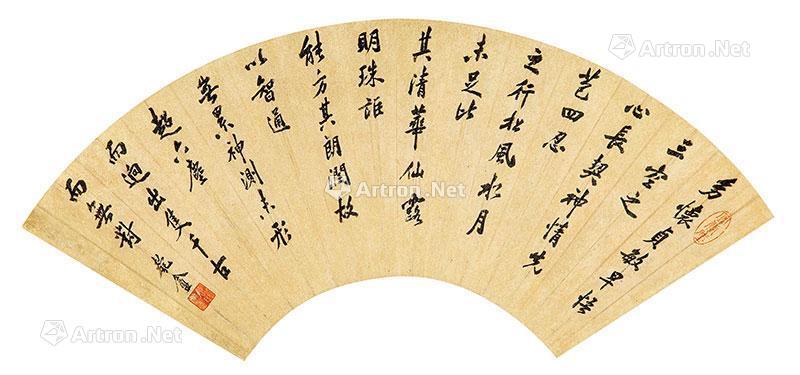 Artron.Net
Artron.Net
幼懷貞敏早悟
三空之
心長契神情先
苞四忍
之行松風水月
未足比
其清華仙露
明珠詎
能方其朗潤故
以智通
無累神測未形
超六塵
而迥出隻千古
而無對
盦
Artron.Net
Artron.Net
Artron.Net